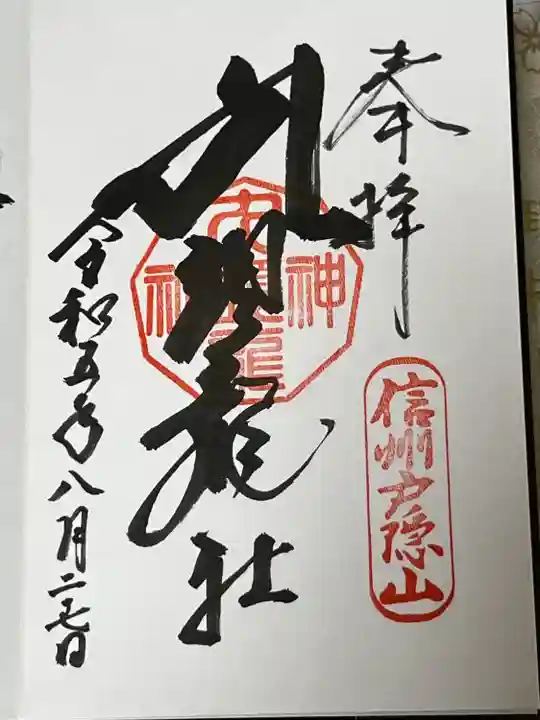 奉拝
信州戸隠山
九頭龍社
令和五年八月二十七日